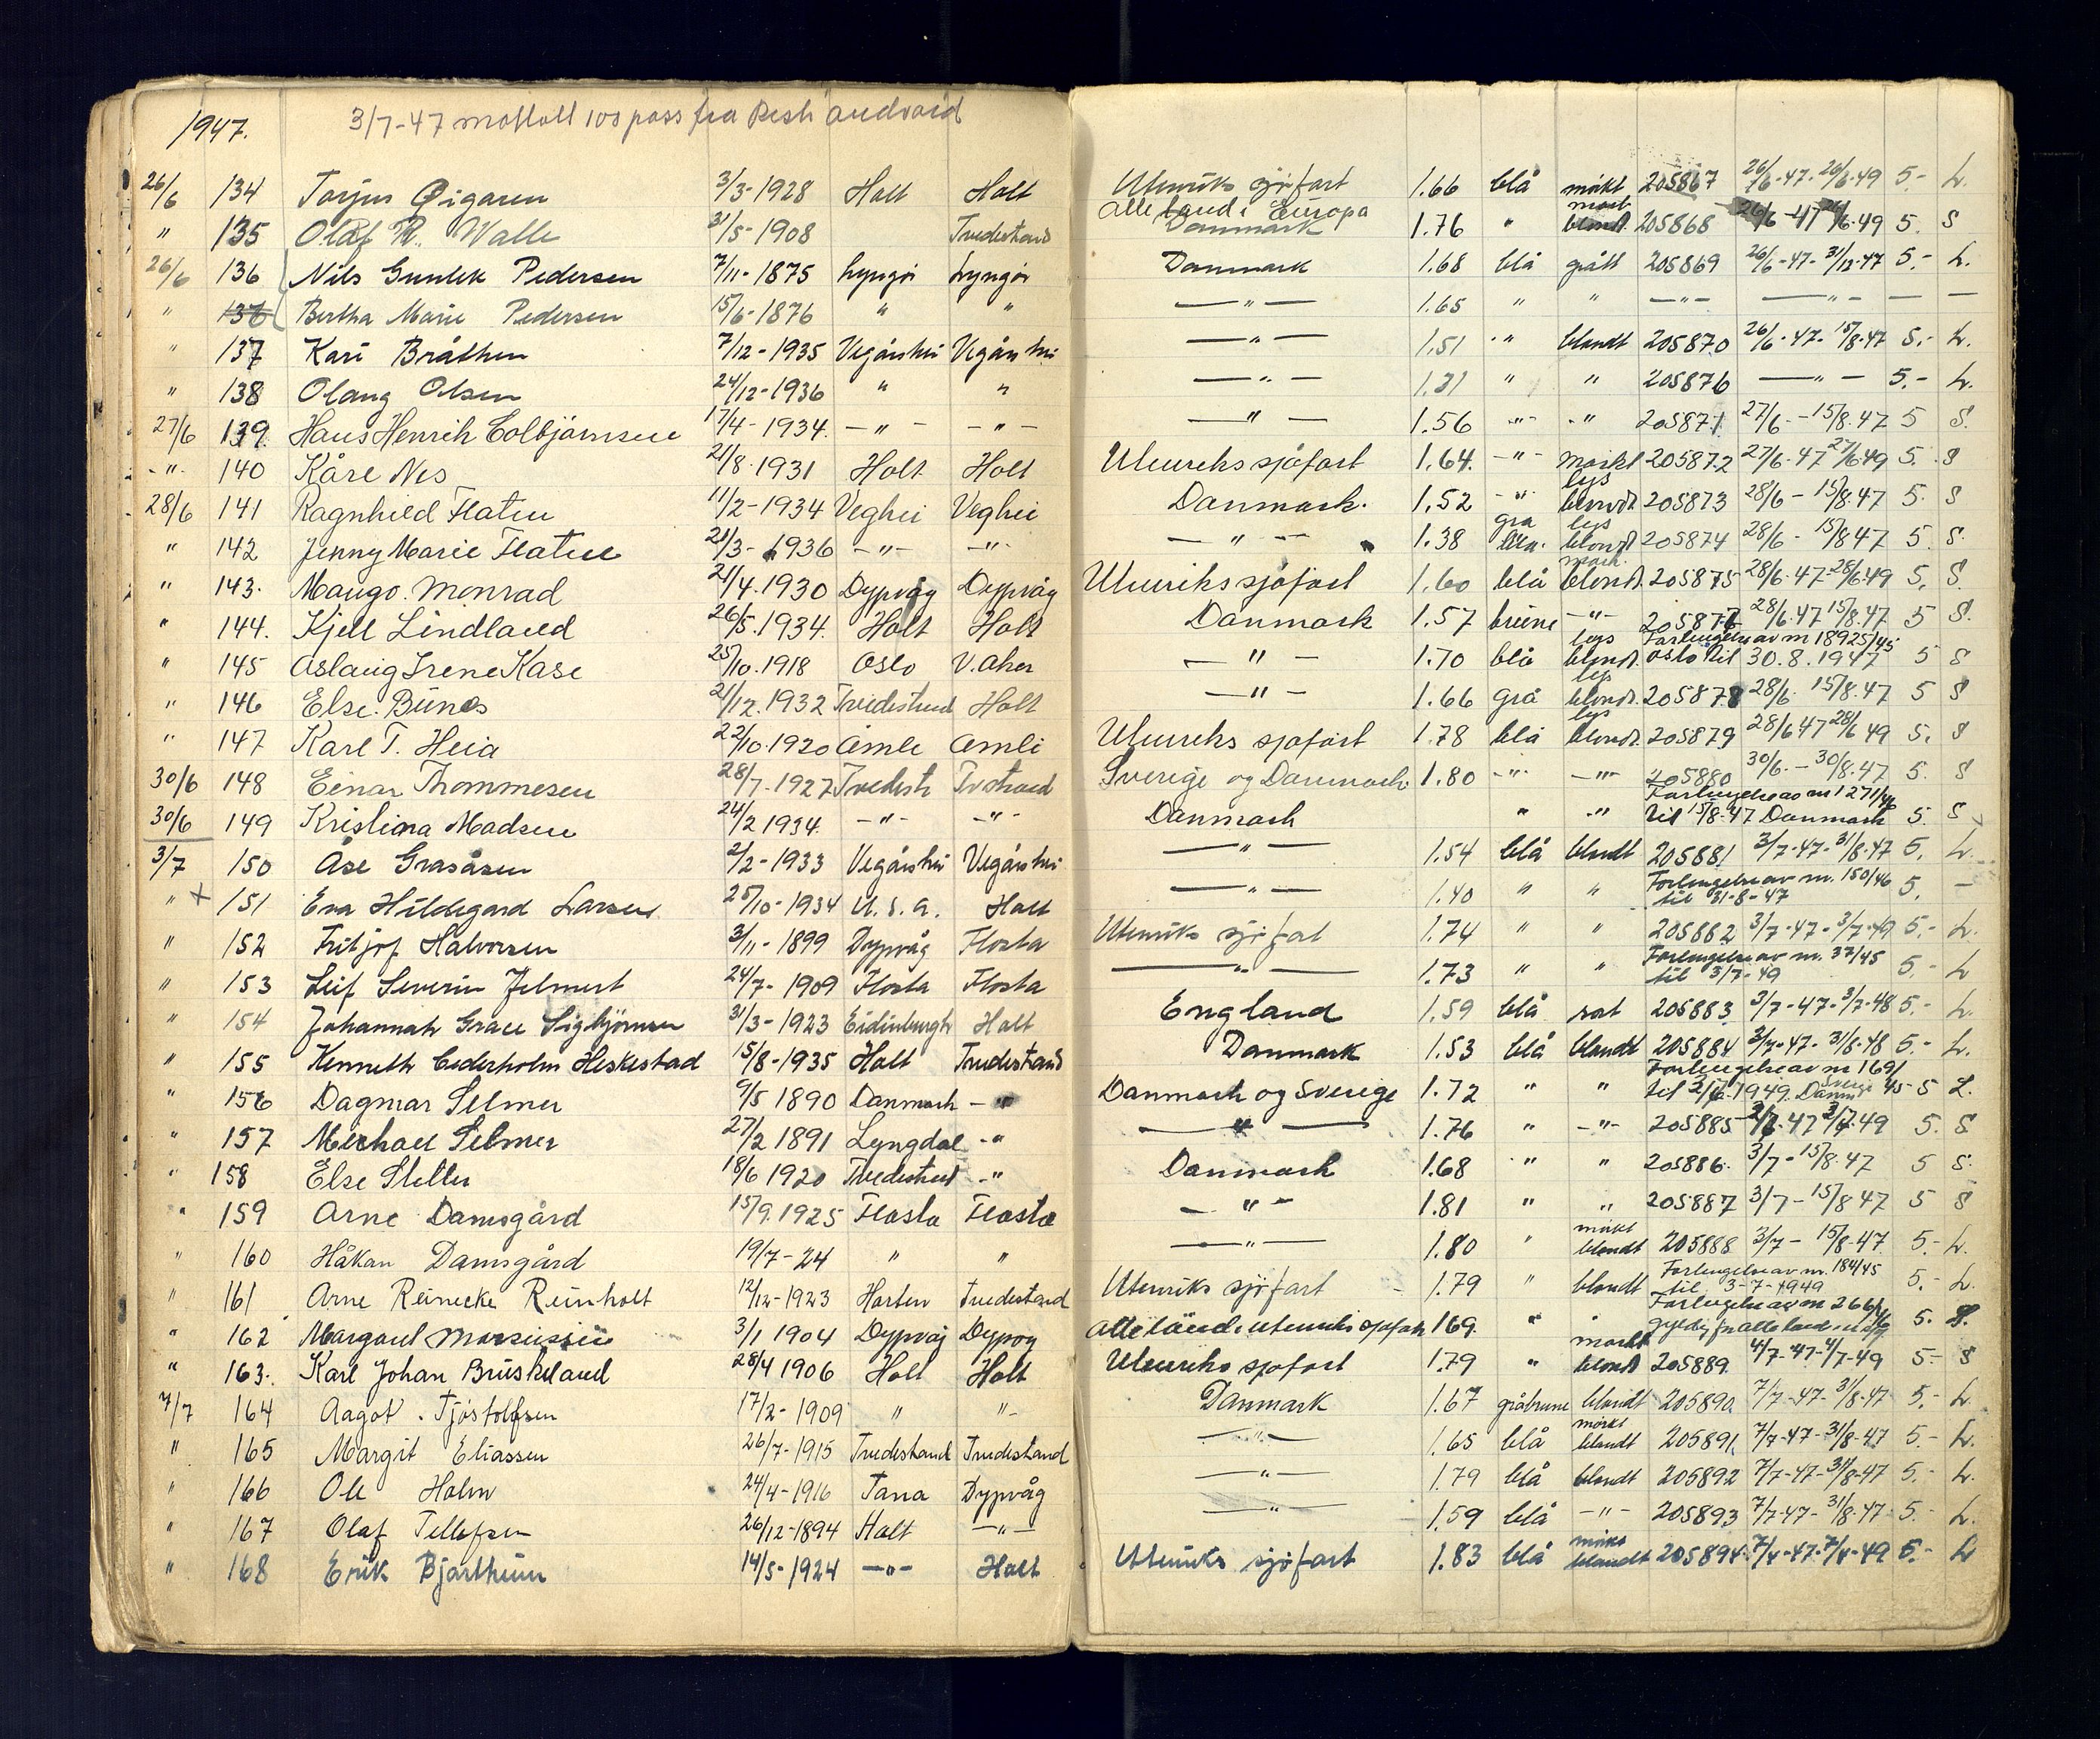 1947. 3/7-47 mottatt 100 pass fra
26/6 134 Torjus Øigaren 3/3-1928 Holt Holt Utenriks sjøfart 1.66 blå mörkt 205867 26/6-47-26/6-49 5.- L.
" 135 Olaf R. Walle 31/5-1908 Tvedestrand Alle land i Europa Danmark 1.76 " mörk blond. 205868 26/6-47 26/6-49 5. S
26/6 136 Nils Gunlek Pedersen 7/11-1875 Lyngör Lyngör Danmark 1.68 blå grått 205869 26/6-47-31/12-47 5.- L.
" 136 Bertha Marie Pedersen 15/6-1876 " " —"— 1.65 " " —"— —"— — —
" 137 Kari Bråthen 7/12-1935 Vegårshei Vegårshei —"— 1.51 " blondt 205870 26/6-47-15/8-47 5.- L.
" 138 Olaug Olsen 24/12-1936 " " —"— 1.31 " " 205876 —"— 5.- L.
27/6 139. Hans Henrik Colbjørnsen 17/4-1934. —"— —"— —"— 1.56 -"- -"- 205871. 27/6.-15/8.47 5 S.
-"- 140 Kåre Nes 21/8.1931 Holt Holt Utenriks sjøfart 1.64. -"- mørkt 205872 27/6-47 27/6 49 5. S
28/6 141 Ragnhild Flaten 11/2-1934 Veghei Veghei Danmark. 1.52 -"- lys blondt 205873 28/6-15/8.47 5. S
" 142 Jenny Marie Flaten 21/3-1936 -"- -"- —"— 1.38 grå blå. lys blondt 205874 28/6-15/8 47 5. S.
" 143. Maugo. Monrad 21/4.1930 Dypvåg Dypvåg Utenriks sjøfart 1.60 blå mørk. blond. 205875 28/6-47-28/6-49 5. S.
" 144. Kjell Lindland 26/5.1934. Holt Holt Danmark 1.57 brune -"- 205877 28/6.47 15/8.47 5 S.
" 145 Aslaug Irene Kase 25/10.1918 Oslo V. Aker —"— 1.70 blå lys blond. Forlengelse av nr 18925/45 Oslo til 30.8.1947 5 S
" 146 Else. Bünes 21/12.1932 Tvedestrand Holt —"— 1.66 grå lys blondt. 205878 28/6. 15/8.47 5 S
" 147 Karl T. Heia 22/10.1920 Åmli Åmli Utenriks sjøfart 1.78 blå lys blondt. 205879 28/6 47 28/6 49 5. S
30/6 148 Einar Thommesen 28/7.1927 Tvedestr Tvstrand Sverige og Danmark 1.80 -"- -"- 205880 30/6.-30/8.47 5. S
30/6 149 Kristina Madsen 24/2 1934. -"- -"- Danmark " -"- Forlengelse av nr 1271/46 til 15/8-47 Danmark 5. S
3/7 150 Åse Gråsåsen 2/2-1933 Vegårshei Vegårshei —"— 1.54 blå blondt 205881 3/7-47-31/8-47 5. L.
" + 151 Eva Hildegard Larsen 25/10-1934 U.S.A. Holt —"— 1.40 " " Forlengelse av nr. 150/46 til 31-8-47 5. —
" 152 Fritjof Halvorsen 3/11-1899 Dypvåg Flosta Utenriks sjøfart 1.74 " " 205882 3/7-47-3/7-49 5.- L.
" 153 Leif Severin Jelmert 24/7-1909 Flosta Flosta —"— 1.73 " " Forlengelse av nr. 37/45 til 3/7-49 5.- L
" 154 Johannah Grace Sigbjørnsen 31/3-1923 Eidinburgh Holt England 1.59 blå rot 205883 3/7-47-3/7-48 5.- L.
" 155 Kenneth Cederholm Heskestad 15/8-1935 Holt Tvedestrand Danmark 1.53 blå blondt 205884 3/7-47-31/8-48 5.- L.
" 156 Dagmar Selmer 9/5 1890 Danmark —"— Danmark og Sverige 1.72 " " Forlengelse av nr 1691 til 2/7.1949. Sverige Danm 45 5 L.
" 157 Michael Selmer 27/2 1891 Lyngdal -"- —"— 1.76 " -"- 205885 3/7.47 3/7.49 5. S.
" 158 Else Sletten 18/6 1920 Tvedestrand -"- Danmark 1.68 " " 205886. 3/7-15/8.47 5 S.
" 159 Arne Damsgård 15/9.1925 Flosta Flosta —"— 1.81 " " 205887 3/7-15/8 47 5 S
" 160 Håkon Damsgård 19/7-24 " " —"— 1.80 " mörkt blondt 205888 3/7-15/8-47 5.- L.
" 161 Arne Reinecke Reinholt 12/12-1923 Horten Tvedestrand Utenriks sjøfart 1.79 " blondt Forlengelse av nr. 184/45 til 3-7-1949 5.- L.
" 162 3/1 1904 Dypvåg Dypvåg Alle land. utenriks sjøfart 169. " " Forlengelse av nr 266/46 5. S.
" 163. Karl Johan Brüskeland 28/4 1906 Holt Holt Utenriks sjøfart 1.79 " mørkt blond 205889. 4/7-47-4/7-49 5.- S
7/7 164 Aagot. Tjøstolfsen 17/2-1909 " "- Danmark 1.67 gråbrune blondt 205890 7/7-47-31/8-47 5.- L.
" 165 Margit Eliassen 26/7-1915 Tvedestrand Tvedestrand —"— 1.65 blå mörkt blondt 205891. 7/7-47-31/8-47 5.- L.
" 166 Ole Holm 24/4-1916 Tana Dypvåg —"— 1.79 blå blondt 205892 7/7-47-31/8-47 5.- L.
" 167 Olaf Tellefsen 26/12-1894 Holt —"— —"— 1.59 blå -"- 205893 7/7-47-31/8-47 5.- L.
" 168 Erik Bjorthun 14/5-1924 —"— Holt Utenriks sjøfart 1.83 blå mörkt blondt 205894 7/7-47-7/7-49 5.- L